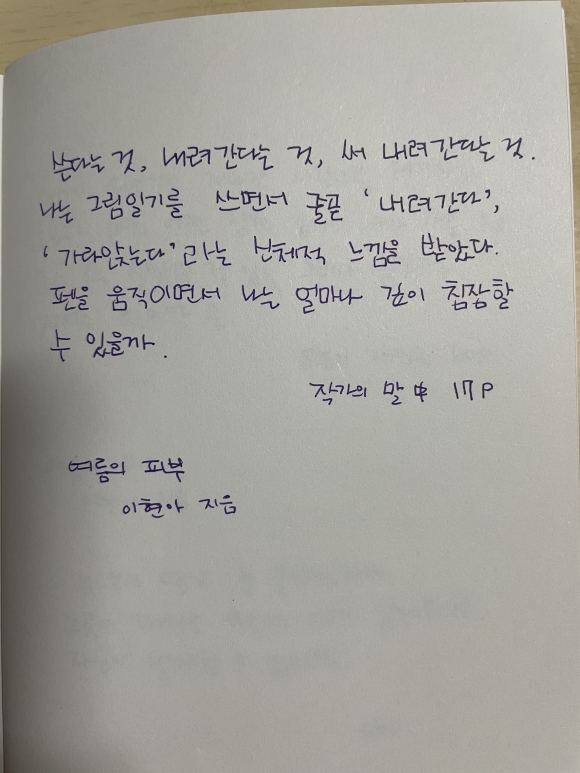 쓴다는 것, 내려간다는 것, 써 내려간다는 것.
나는 그림일기를 쓰면서 줄곧 '내려간다',
'가라앉는다'라는 신체적 느낌을 받았다.
펜을 움직이면서 나는 얼마나 깊이 침잠할
수 있을까.
작가의 말 中 17P
여름의 피부
이현아 지음